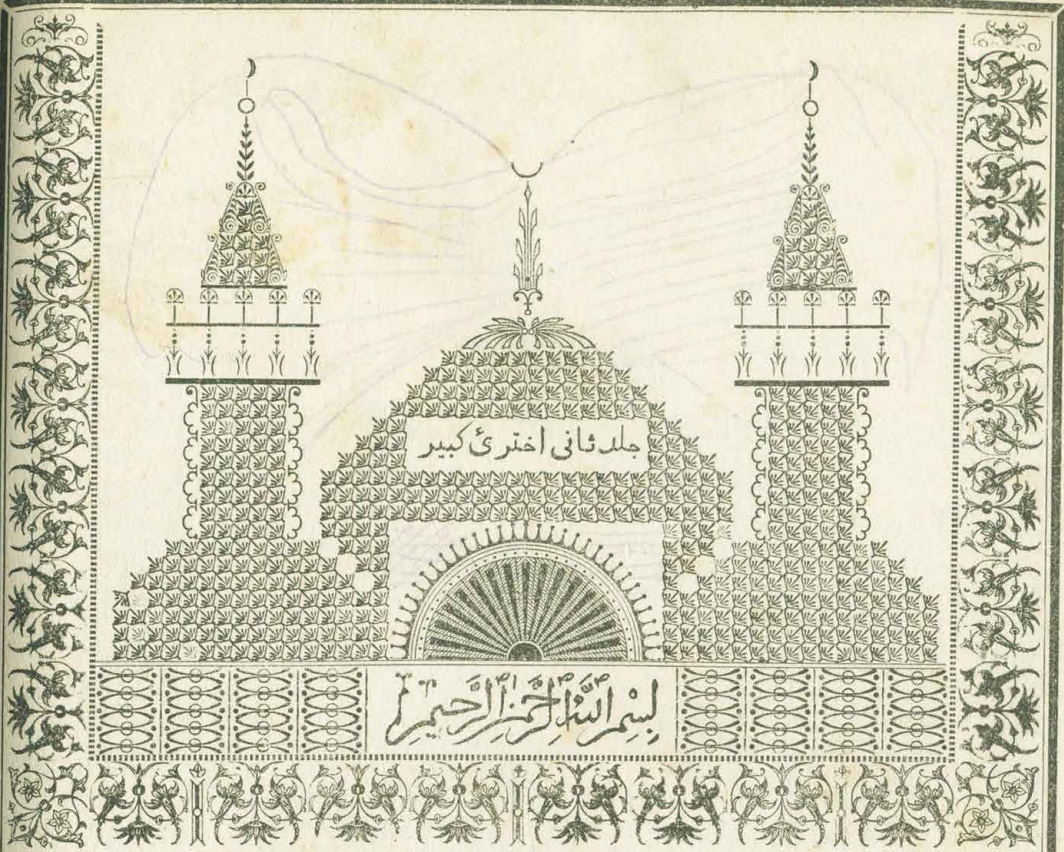 جلد ثانى اخترئ كبير
بِسْمِ اللهِ الرَّحْمنِ الرَّحيمِ